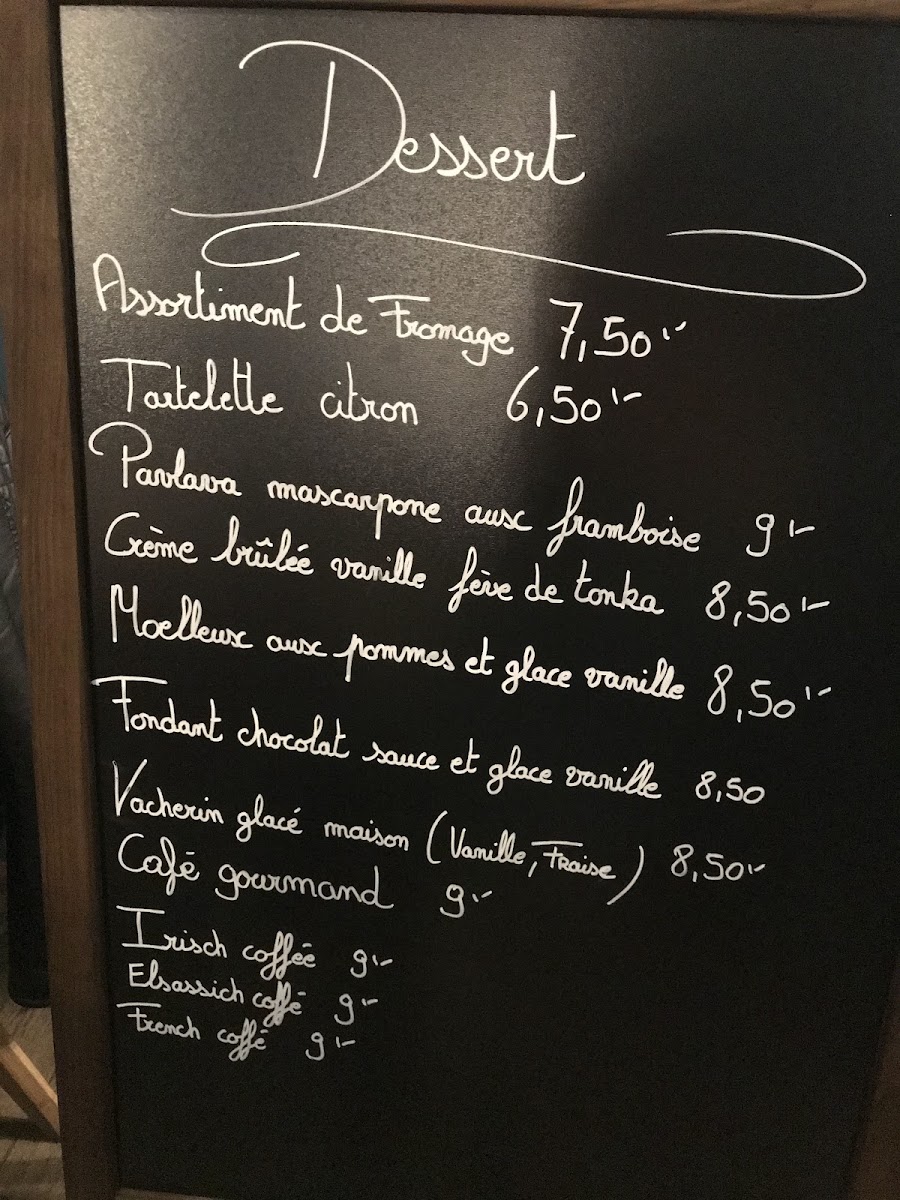 Dessert
Assortiment de Fromage 7,50.-
Tartelette citron 6,50.-
Pavlava mascarpone aux framboise 9.-
Crème brûlée vanille fève de tonka 8,50.-
Moelleux aux pommes et glace vanille 8,50.-
Fondant chocolat sauce et glace vanille 8,50
Vacherin glacé maison (Vanille, Fraise) 8,50.-
Café gourmand 9.-
Irisch coffée 9.-
Elsassich coffé 9.-
French coffé 9.-